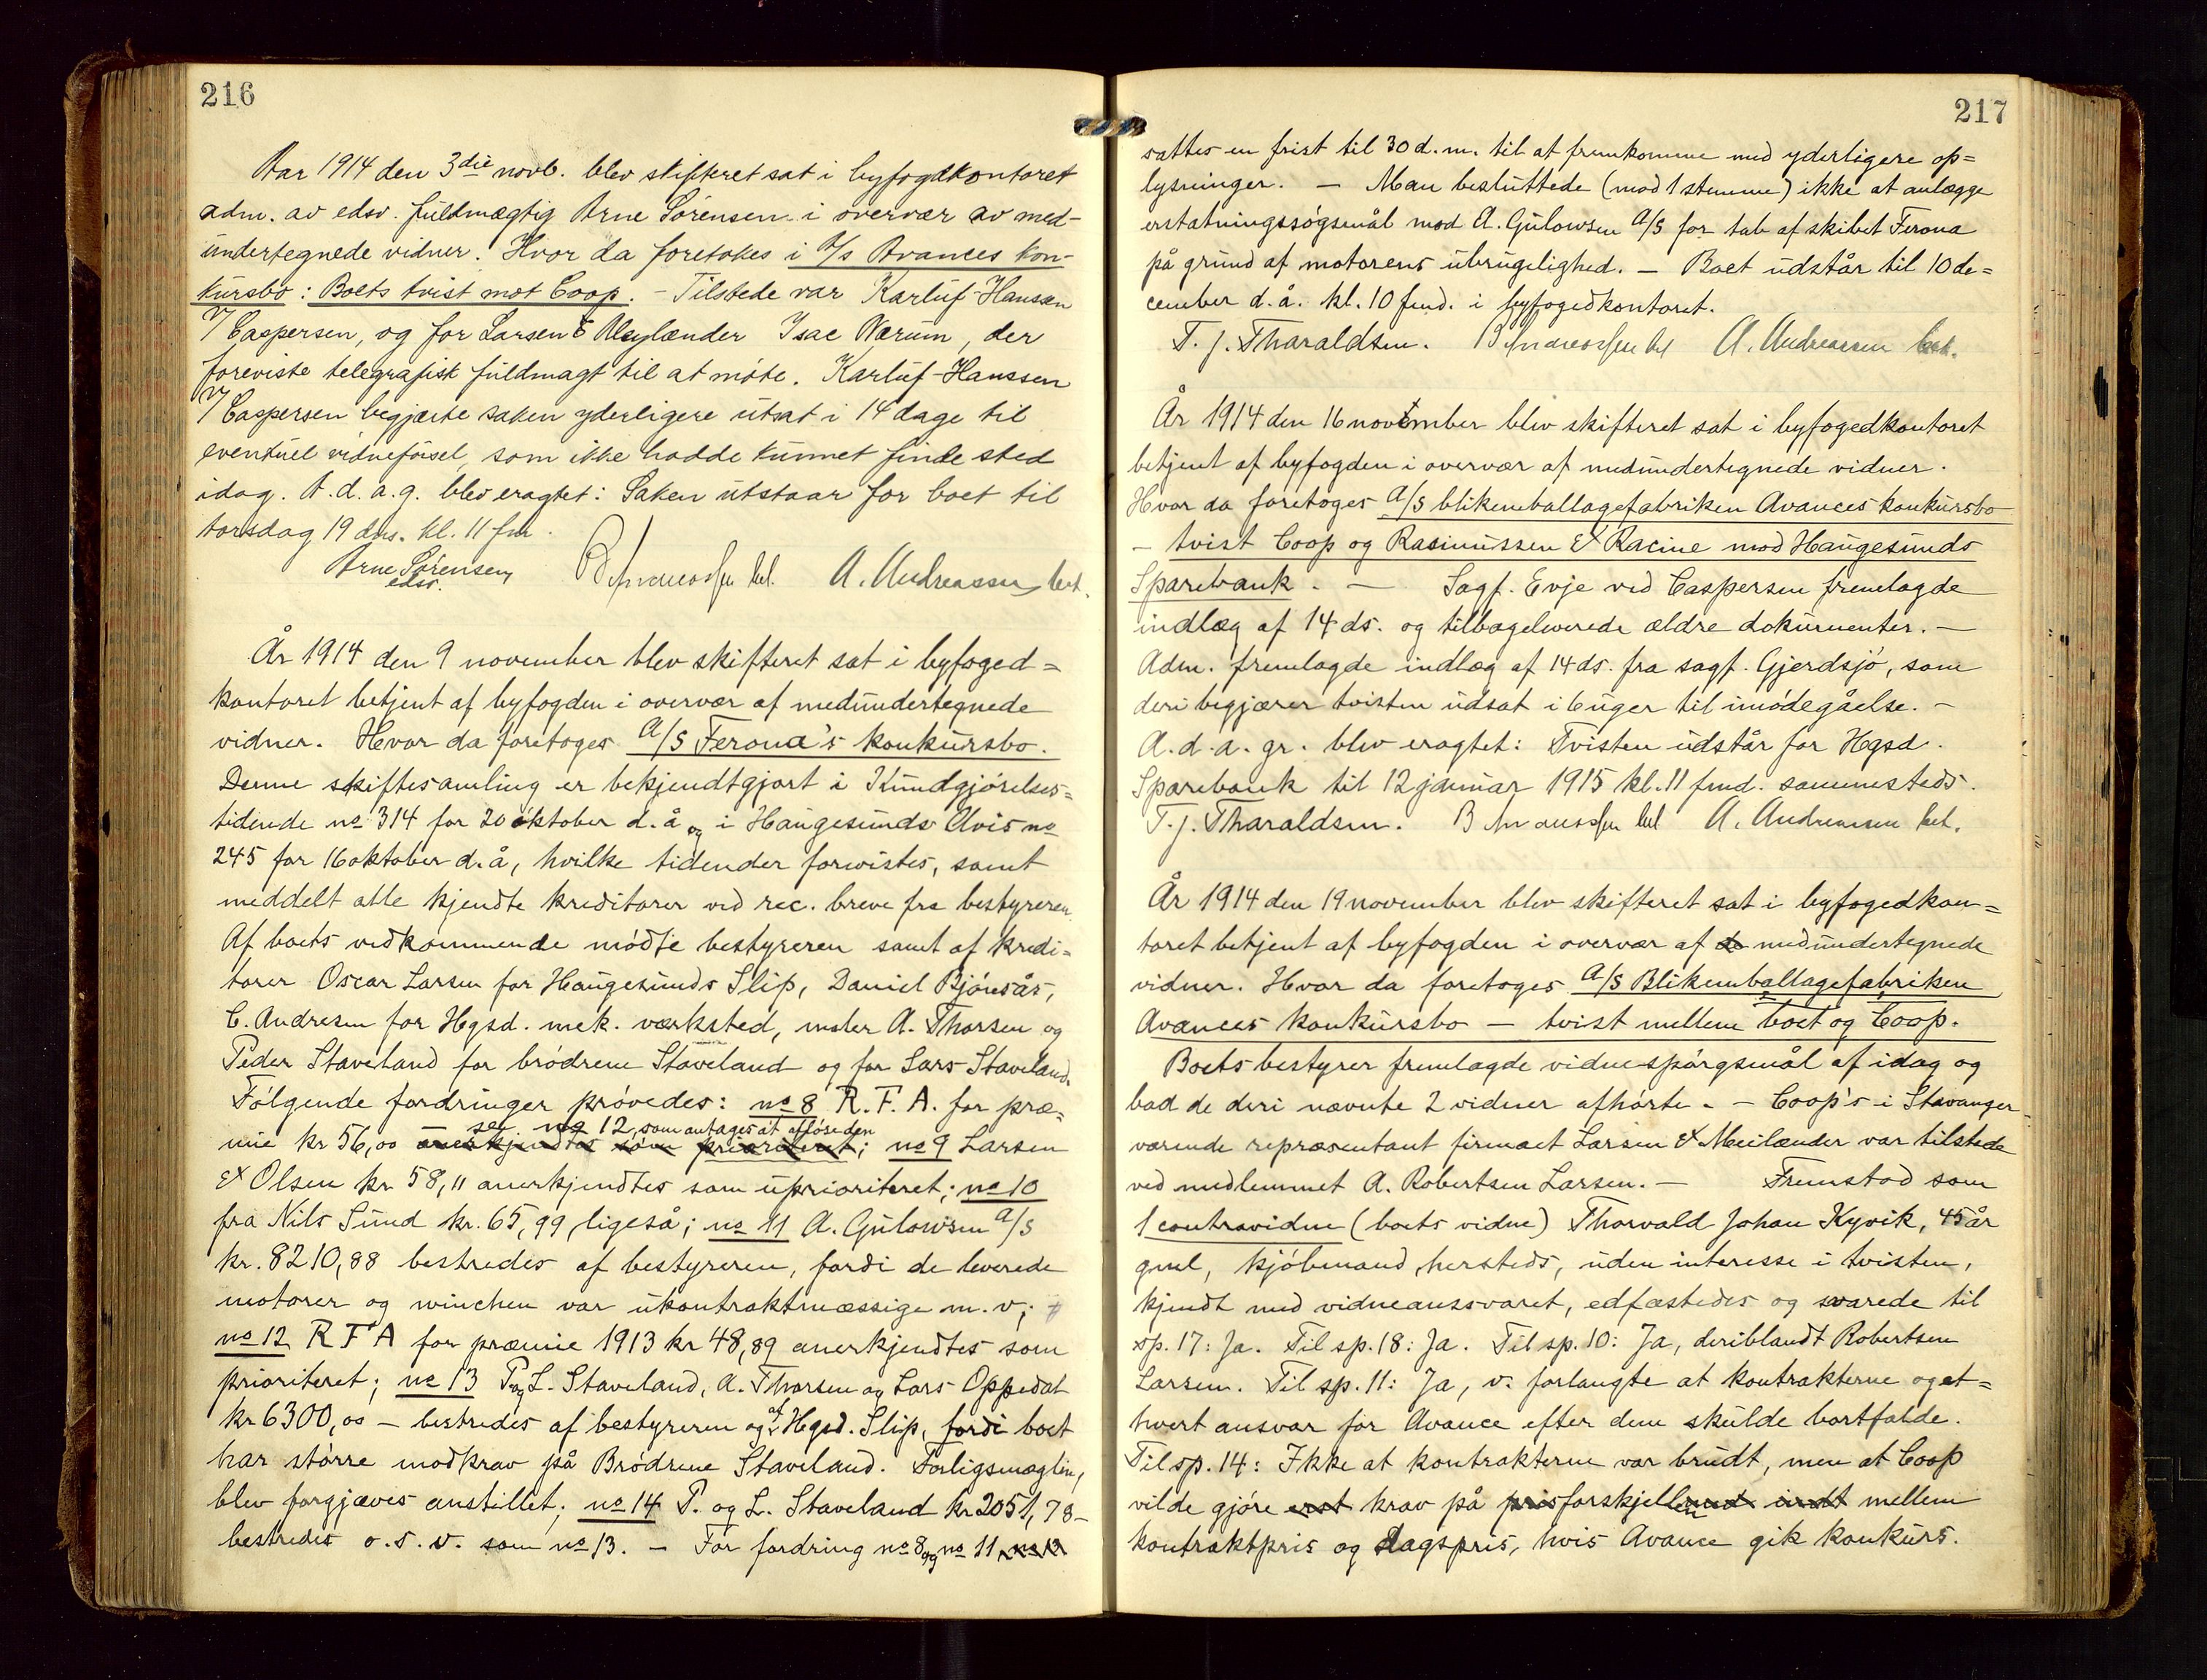 216
Aar 1914 den 3die novb. blev skifteret sat i byfogdkontoret
adm. av edsv. fuldmægtig Arne Sörensen i overvær av med-
undertegnede vidner. Hvor da foretokes i A/s Avances kon-
kursbo: Boets tvist mot Coop. - Tilstede var Karluf-Hanssen
v/ Caspersen, og for Larsen & Meylænder Isac Nærum, der
foreviste telegrafisk fuldmagt til at möte. Karluf-Hanssen
v/ Caspersen begjærte saken yderligere utsat i 14 dage til
eventuel vidneförsel, som ikke hadde kunnet finde sted
idag. A. d. a. g. blev eragtet: Saken utstaar for boet til
torsdag 19 dns. kl. 11 fm.
Arne Sörensen A. Andreassen bet.
edsv.
År 1914 den 9 november blev skifteret sat i byfoged=
kontoret betjent af byfogden i overvær af medundertegnede
vidner. Hvor da foretoges A/S Ferona's konkursbo.
Denne skiftesamling er bekjendtgjort i Kundgjörelses=
tidende no 314 for 20 oktober d. å. og i Haugesunds Avis no
245 for 16 oktober d. å, hvilke tidender forevistes, samt
meddelt alle kjendte kreditorer ved rec. breve fra bestyreren.
Af boets vedkommende mödte bestyreren samt af kredi=
torer Oscar Larsen for Haugesunds Slip, Daniel Bjönsås,
C. Andresen for Hgsd. mek. værksted, maler A. Thorsen og
Peder Staveland for brödrene Staveland og for Lars Staveland.
Fölgende fordringer prövedes: no 8 R. F. A. for præ=
see no 12, som antages at aflöse den
mie kr 56,00 anerkjendtes som prioriteret; no 9 Larsen
& Olsen kr 58,11 anerkjendtes som uprioriteret; no 10
fra Nils Sund kr. 65,99, ligeså; no 11 A. Gulowsen A/S
kr. 8210,88 bestredes af bestyreren, fordi de leverede
motorer og winchen var ukontraktmæssige m. v;
no 12 R F A for præmie 1913 kr 48,89 anerkjendtes som
prioriteret; no 13 P og L. Staveland, A. Thorsen og Lars Oppedal
kr 6300,00 - bestredes af bestyreren og af Hgsd. Slip, fordi boet
har större modkrav på Brödrene Staveland. Forligsmægling
blev forgjæves anstillet; no 14 P. og L. Staveland kr 2051,78 -
bestredes o. s. v. som no 13. - For fordring no 8 og no 11, no 13
217
sattes en frist til 30 d. m. til at fremkomme med yderligere op=
lysninger. - Man besluttede (mod 1 stemme) ikke at anlægge
erstatningssögsmål mod A. Gulowsen A/S for tab af skibet Ferona
på grund af motorens ubrugelighed. - Boet udstår til 10 de=
cember d. å. kl. 10 fmd. i byfogedkontoret.
T. J. Tharaldsen. A. Andreassen bet.
År 1914 den 16 november blev skifteret sat i byfogedkontoret
betjent af byfogden i overvær af medundertegnede vidner.
Hvor da foretoges A/S blikemballagefabriken Avances konkursbo
- tvist Coop og Rasmussen & Racine mod Haugesunds
Sparebank. - Sagf. Evje ved Caspersen fremlagde
indlæg af 14 ds. og tilbageleverede ældre dokumenter. -
Adm. fremlagde indlæg af 14 ds. fra sagf. Gjerdsjö, som
deri begjærer tvisten udsat i 6 uger til imödegåelse. -
A. d. a. gr. blev eragtet: Tvisten udstår for Hgsd.
Sparebank til 12 januar 1915 kl. 11 fmd. sammesteds.
T. J. Tharaldsen. A. Andreassen bet.
År 1914 den 19 november blev skifteret sat i byfogedkon=
toret betjent af byfogden i overvær af medundertegnede
vidner. Hvor da foretoges A/S Blikemballagefabriken
Avances konkursbo - tvist mellem boet og Coop.
Boets bestyrer fremlagde vidnespörgsmål af idag og
bad de deri nævnte 2 vidner afhörte. - Coop's i Stavanger
værende repræsentant firmaet Larsen & Meilænder var tilstede
ved medlemmet A. Robertsen Larsen. - Fremstod som
1 contravidne (boets vidne) Thorvald Johan Kyvik, 45 år
gml, kjöbmand, hersteds, uden interesse i tvisten,
kjendt med vidneansvaret, edfæstedes og svarede til
sp. 17: Ja. Til sp. 18: Ja. Til sp. 10: Ja, deriblandt Robertsen
Larsen. Til sp. 11: Ja, v. forlangte at kontrakterne og et=
hvert ansvar for Avance efter dem skulde bortfalde.
Til sp. 14: Ikke at kontrakterne var brudt, men at Coop
vilde gjöre erst krav på prisforskjellen mellem
kontraktpris og dagspris, hvis Avance gik konkurs.